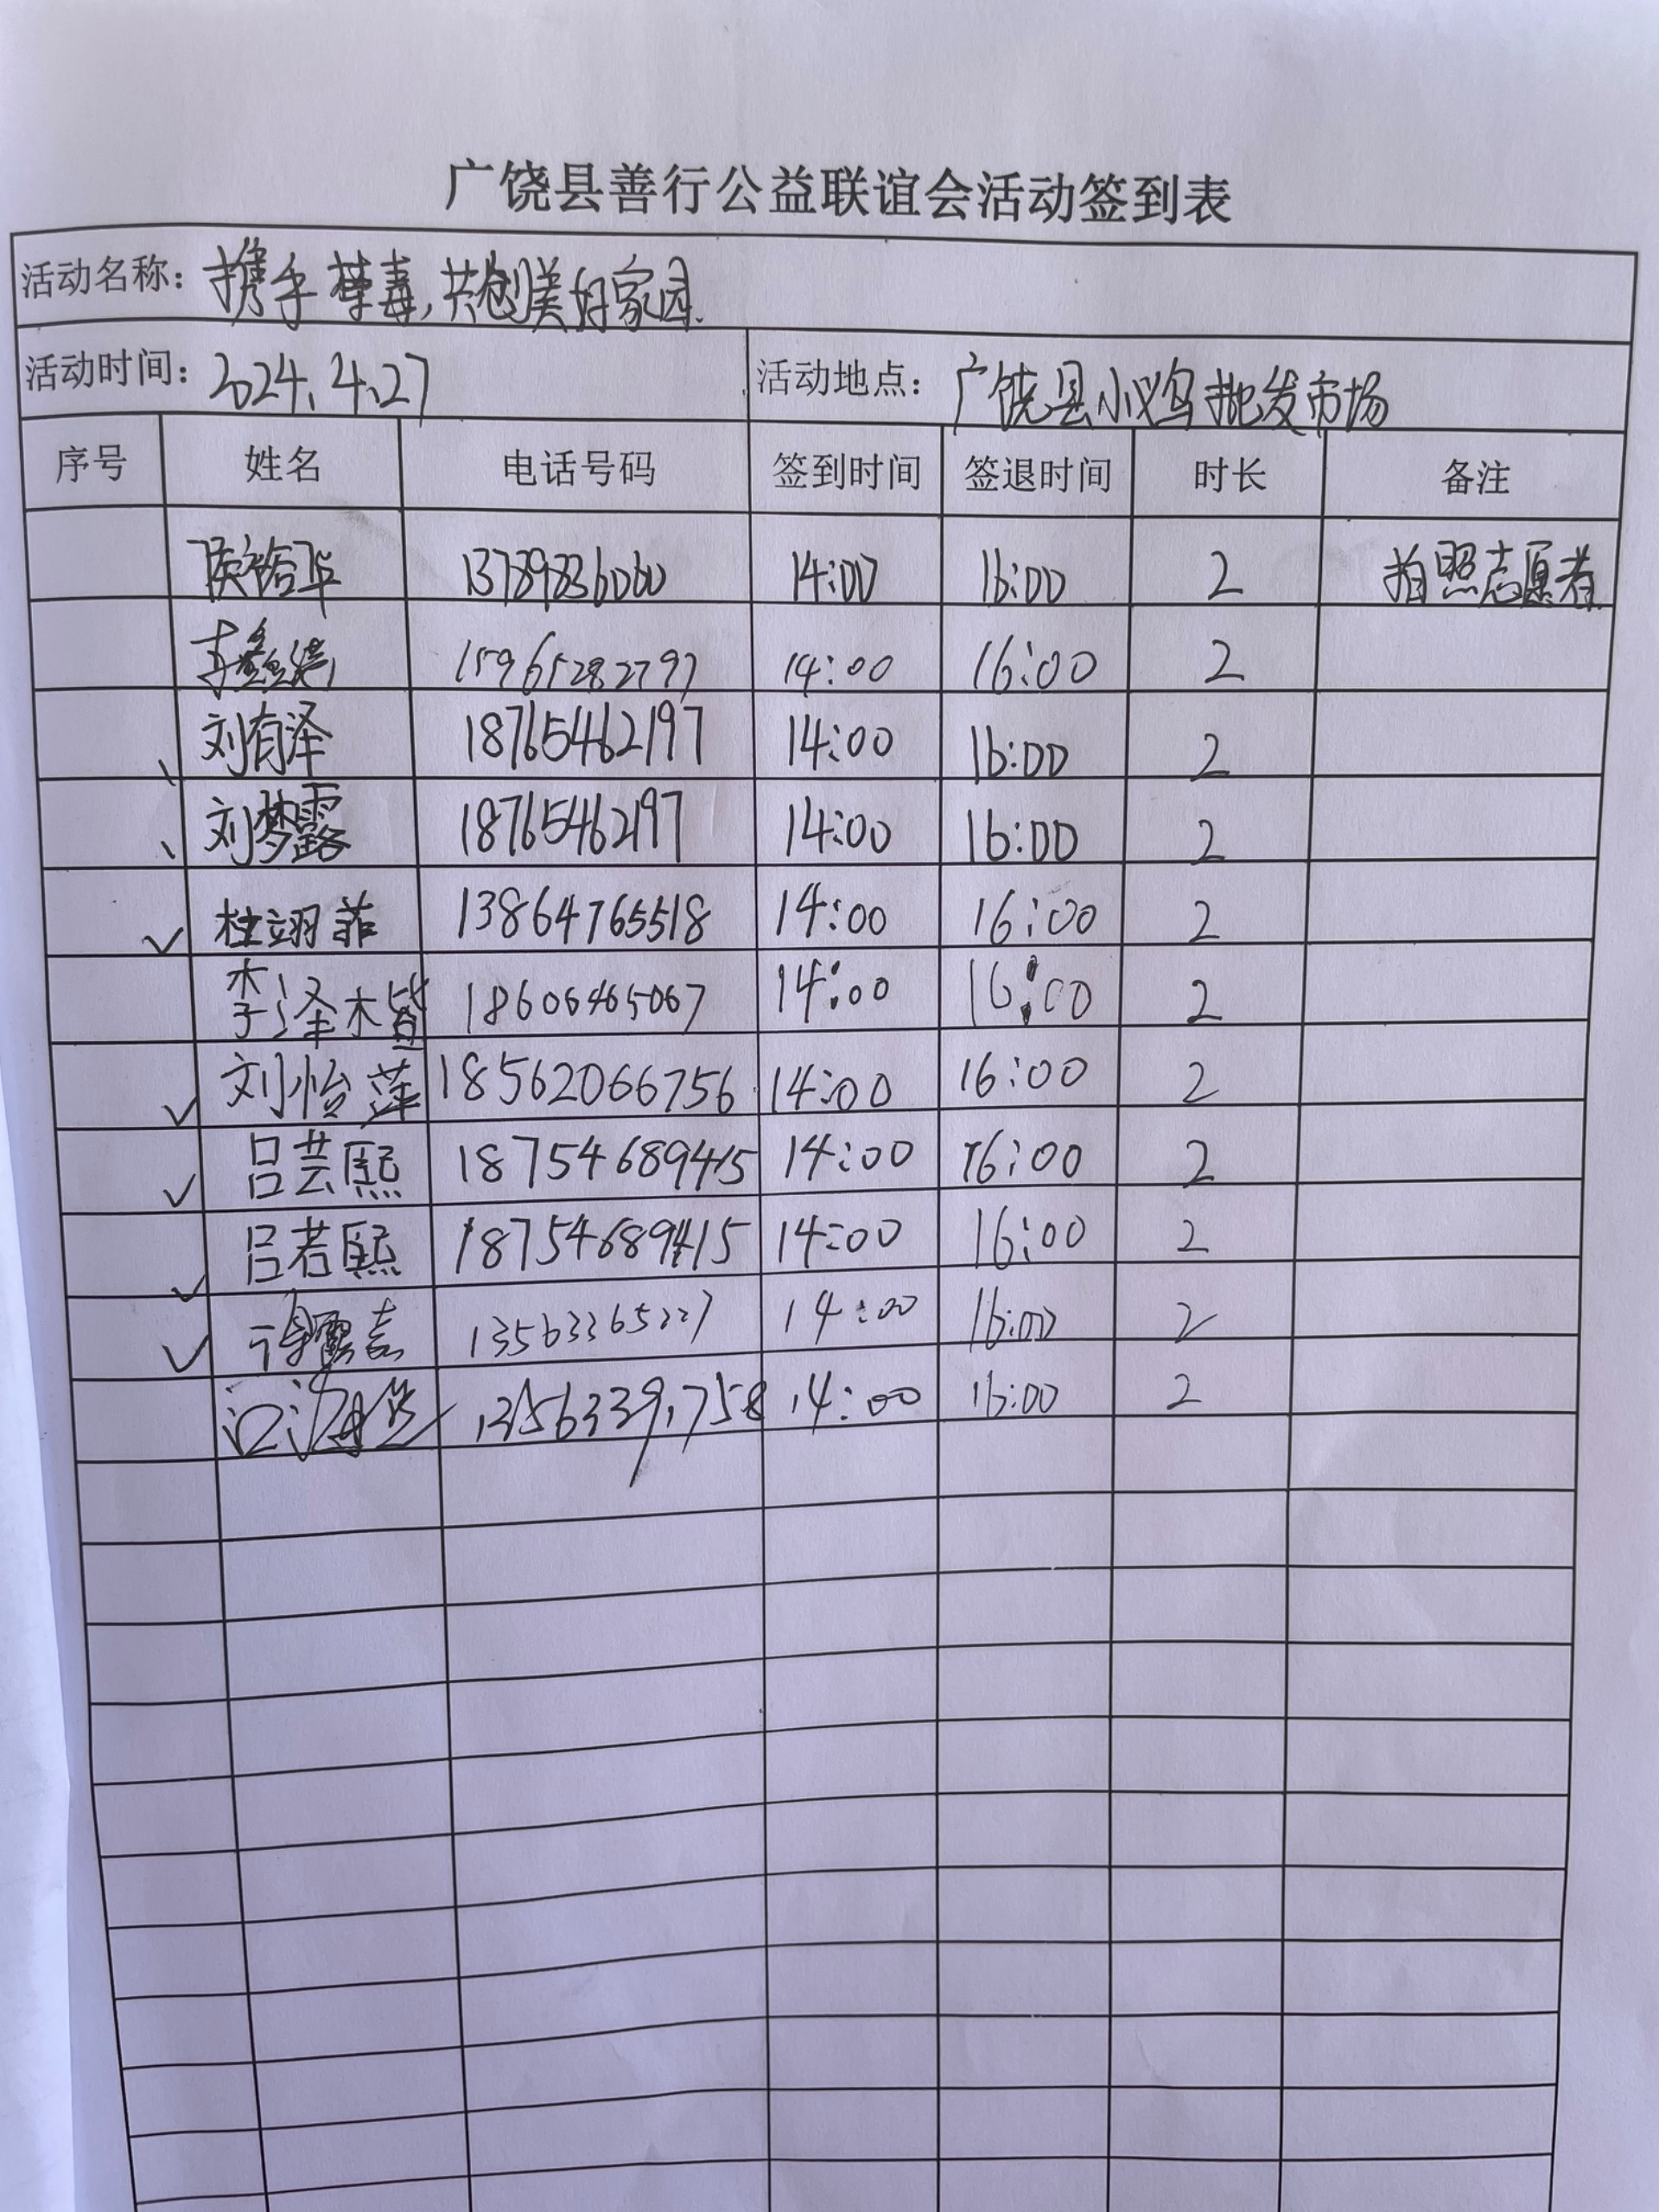 广饶县善行公益联谊会活动签到表
活动名称：携手禁毒，共创美好家园.
活动时间：2024.4.27 活动地点：广饶县小义乌批发市场
序号 姓名 电话号码 签到时间 签退时间 时长 备注
13789836060 14:00 16:00 2 拍照志愿者
15965282797 14:00 16:00 2
刘有泽 18765462197 14:00 16:00 2
刘梦露 18765462197 14:00 16:00 2
杜翊菲 13864765518 14:00 16:00 2
李泽楷 18606465067 14:00 16:00 2
刘怡萍 18562066756 14:00 16:00 2
吕芸熙 18754689415 14:00 16:00 2
吕若熙 18754689415 14:00 16:00 2
14:00 16:00 2
14:00 16:00 2